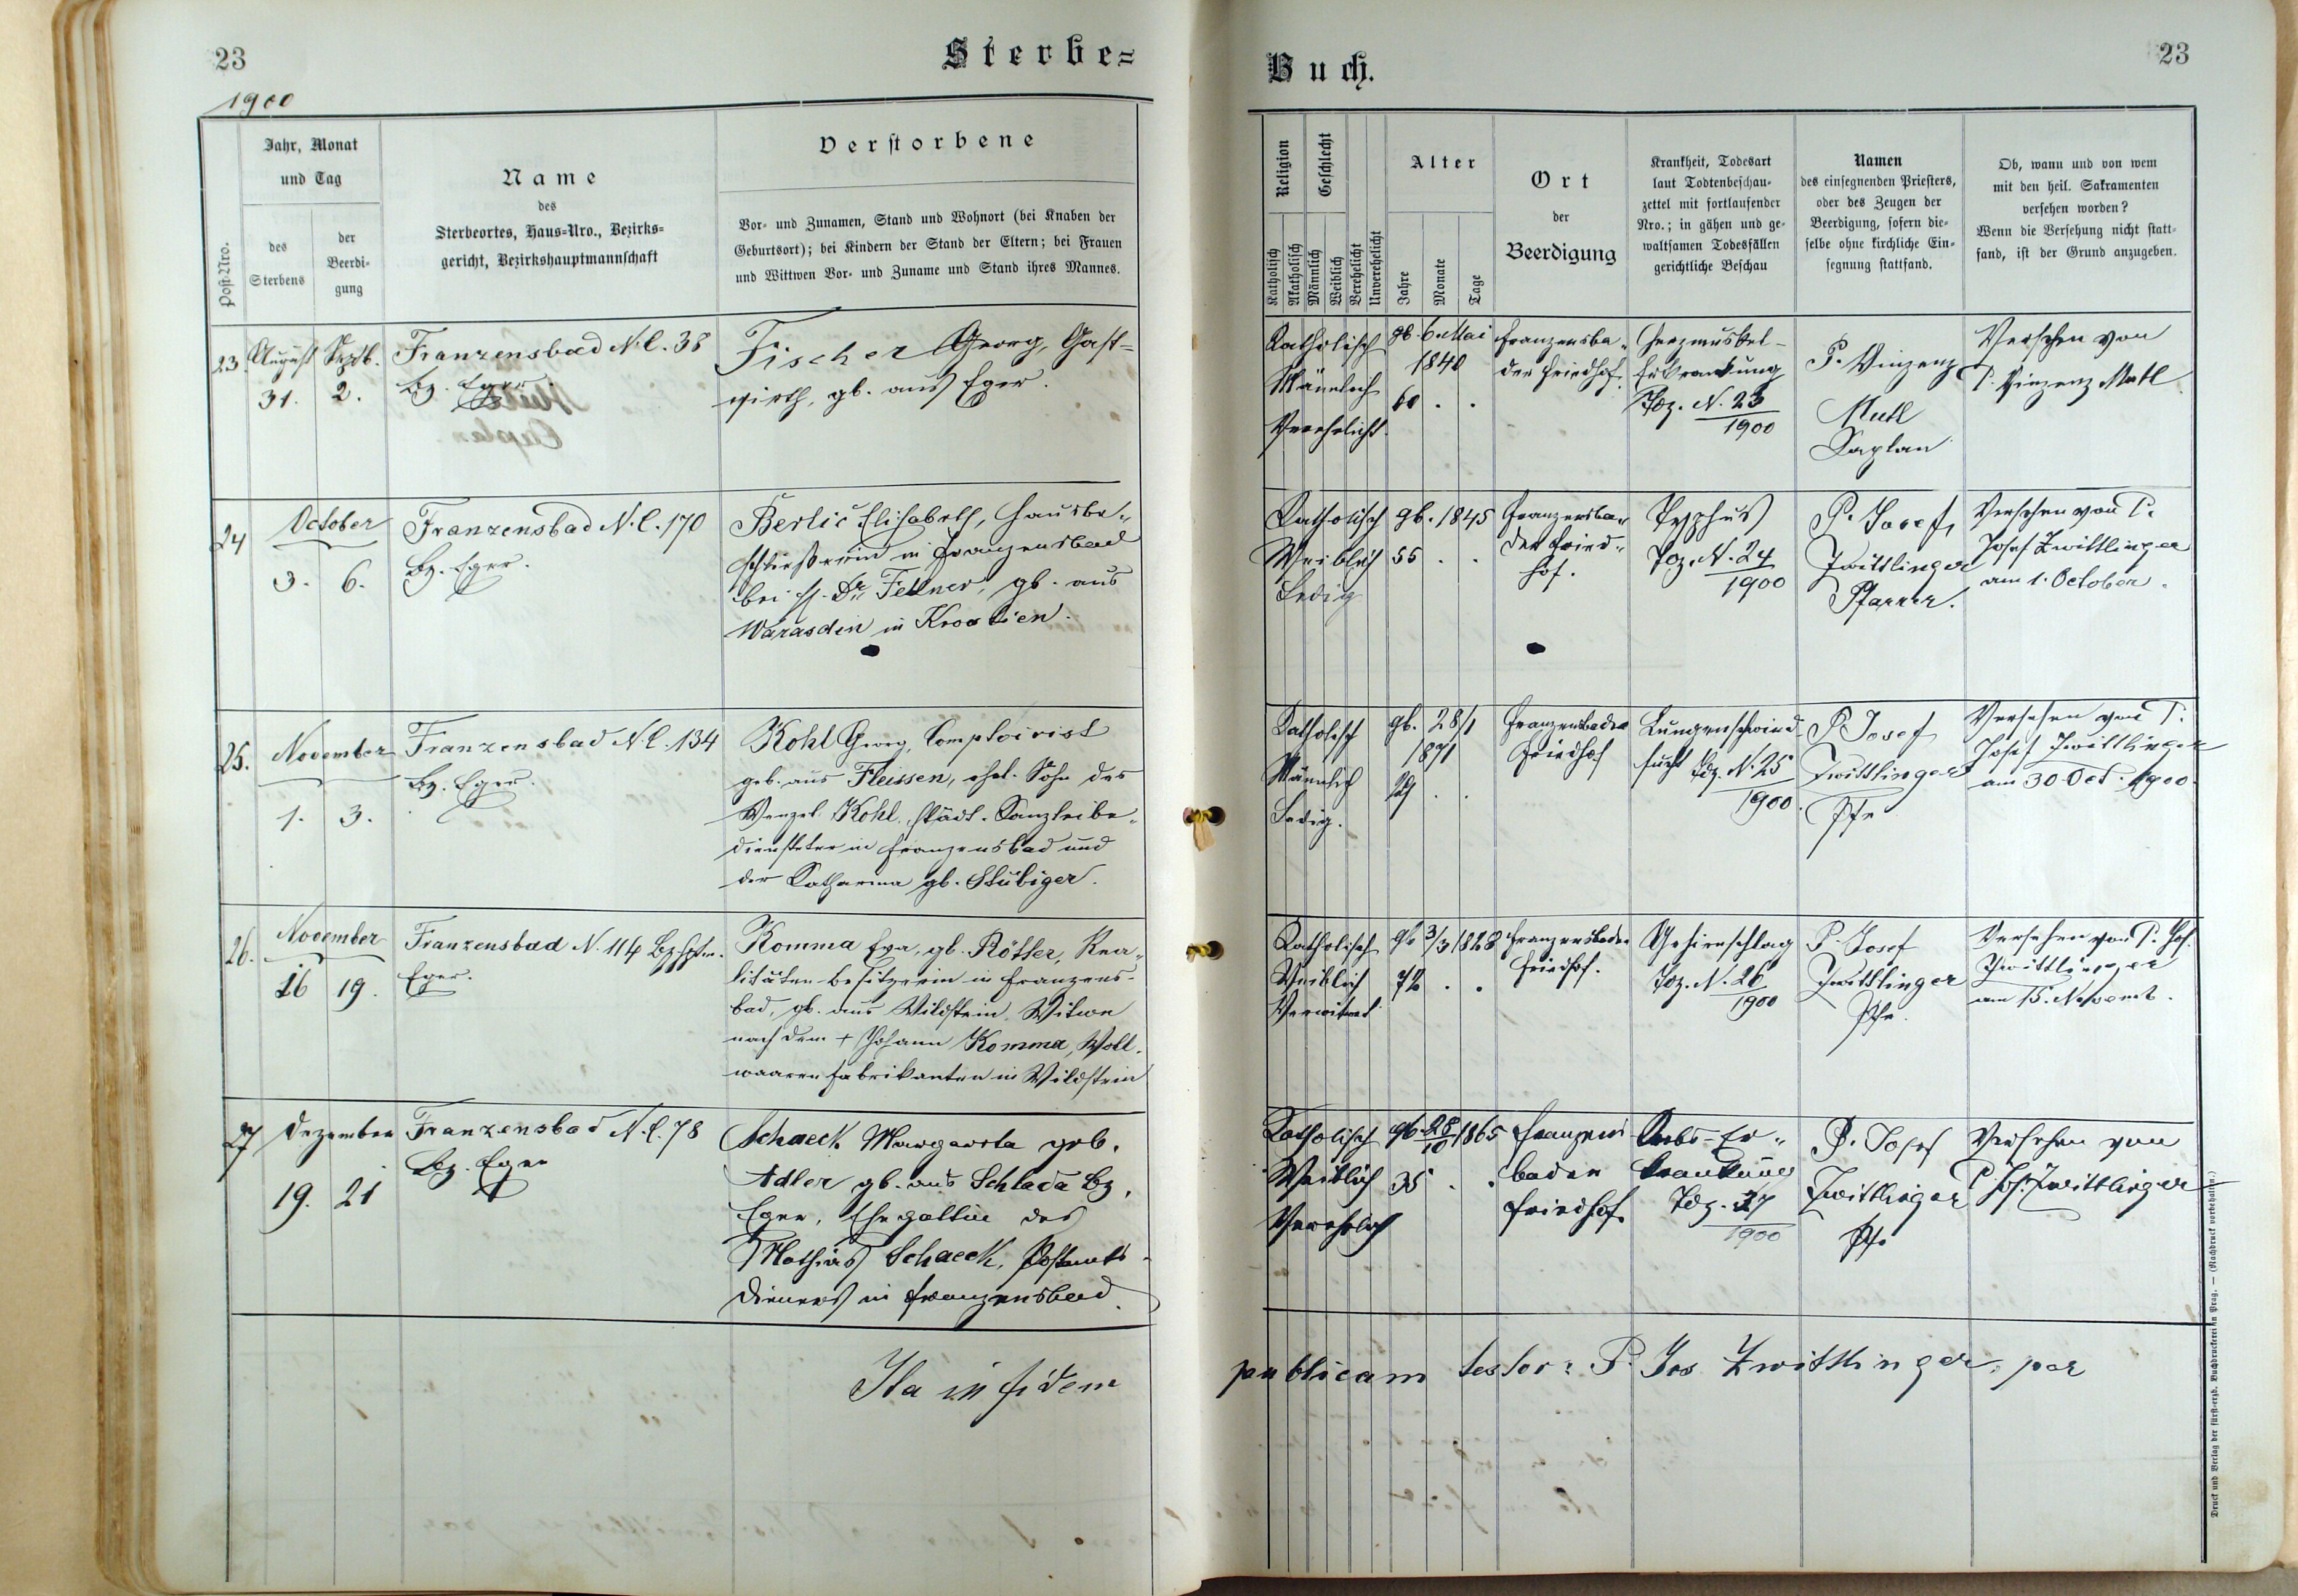 23
Sterbe=
1900
Post-Nro.
Jahr, Monat
und Tag
des
Sterbens
der
Beerdi-
gung
Name
des
Sterbeortes, Haus-Nro., Bezirks=
gericht, Bezirkshauptmannschaft
Verstorbene
Vor- und Zunamen, Stand und Wohnort (bei Knaben der
Geburtsort); bei Kindern der Stand der Eltern; bei Frauen
und Wittwen Vor- und Zuname und Stand ihres Mannes.
23.
August
31.
Septb.
2.
Franzensbad N.C. 38
Bz. Eger.
Fischer Georg, Gast=
wirth, gb. aus Eger.
24
October
3. 6.
Franzensbad N.C. 170
Bz. Eger.
Berlić Elisabeth, Hausbe-
schließerin in Franzensbad
bei H. Dr. Fellner, gb. aus
Warasdin in Kroatien.
25.
November
1. 3.
Franzensbad N.C. 134
Bz. Eger.
Kohl Georg, Comptoirist
geb. aus Fleissen, ehel. Sohn des
Wenzel Kohl, städt. Kanzleibe-
diensteter in Franzensbad und
der Katharina gb. Stubiger.
26.
November
16 19.
Franzensbad N. 114 Bzhptm.
Eger.
Komma Eva, gb. Rötter, Rea-
litäten besitzerin in Franzens-
bad, gb. aus Wildstein, Witwe
nach dem + Johann Komma, Woll-
waaren fabrikanten in Wildstein
27
Dezember
19. 21
Franzensbad N.C. 78
Bz. Eger
Schaeck Margareta geb.
Adler gb. aus Schlada Bz.
Eger, Ehegattin des
Mathias Schaeck, Postamts-
dieners in Franzensbad.
Ita in fidem
Buch.
23
Religion
Katholisch
Akatholisch
Geschlecht
Männlich
Weiblich
Verehelicht
Unverehelicht
Alter
Jahre
Monate
Tage
Ort
der
Beerdigung
Krankheit, Todesart
laut Todtenbeschau-
zettel mit fortlaufender
Nro.; in gähen und ge-
waltsamen Todesfällen
gerichtliche Beschau
Namen
des einsegnenden Priesters,
oder des Zeugen der
Beerdigung, sofern die-
selbe ohne kirchliche Ein-
segnung stattfand.
Ob, wann und von wem
mit den heil. Sakramenten
versehen worden?
Wenn die Versehung nicht statt-
fand, ist der Grund anzugeben.
Katholisch
Männlich
Verehelicht
gb. 6. Mai
1840
60 . .
Franzensba-
der Friedhof.
Herzmuskel-
Erkrankung
Tbz. N. 23
1900
P. Vinzenz
Mutl
Kaplan
Versehen von
P. Vinzenz Mutl
Katholisch
Weiblich
Ledig
gb. 1845
55 . .
Franzensba-
der Fried-
hof.
Typhus
Tbz. N. 24
1900
P. Josef
Zwittlinger
Pfarrer.
Versehen von P.
Josef Zwittlinger
am 1. October.
Katholisch
Männlich
Ledig.
gb. 28/1
1871
29 . .
Franzensbader
Friedhof
Lungenschwind-
sucht Tbz. N. 25
1900.
P. Josef
Zwittlinger
Pfr
Versehen von P.
Josef Zwittlinger
am 30 Oct. 1900.
Katholisch
Weiblich
Verwitwet
gb 3/3 1828
72 . .
Franzensbader
Friedhof.
Gehirnschlag
Tbz. N. 26
1900
P. Josef
Zwittlinger
Pfr.
Versehen von P. Jos.
Zwittlinger
am 15. Novemb.
Katholisch
Weiblich
Verehelich
gb 28/10 1865
35 . .
Franzens
bader
Friedhof
Krebs-Er-
krankung
Tbz. 27
1900
P. Josef
Zwittlinger
Pfr
Versehen von
P. Jos. Zwittlinger
publicam testor: P. Jos Zwittlinger, par
Druck und Verlag der fürst-erzb. Buchdruckerei in Prag. — (Nachdruck vorbehalten.)